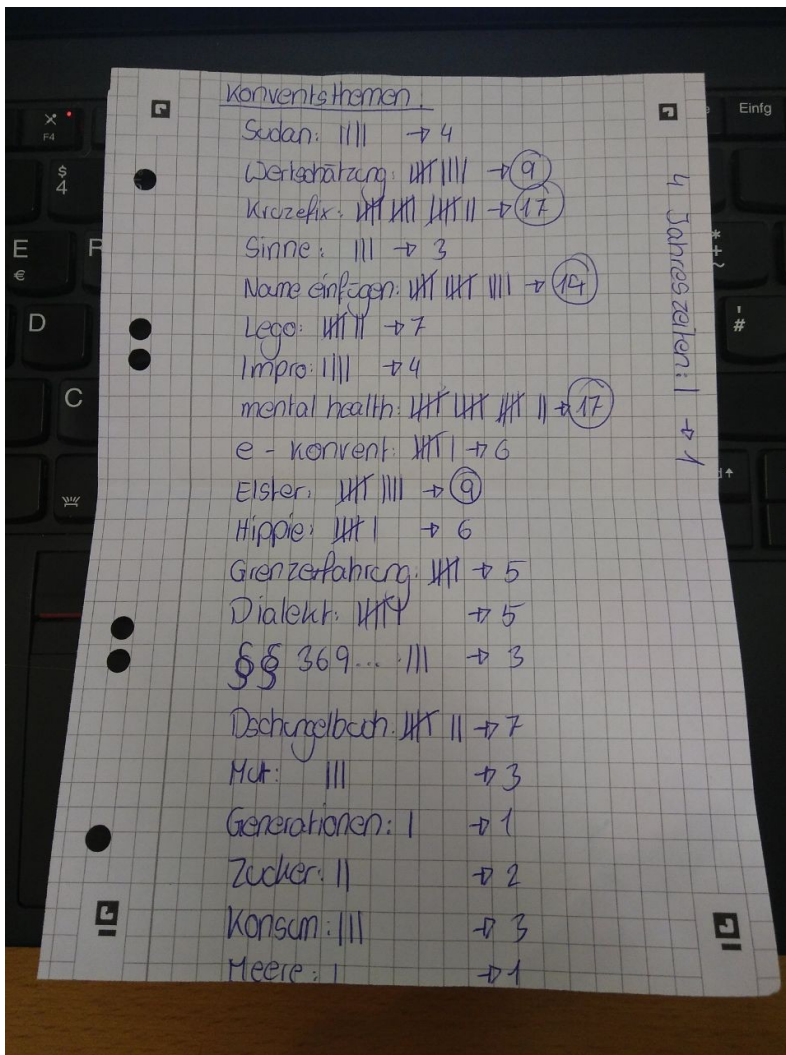 Konventsthemen.
Sudan: |||| → 4
Wertschätzung: 卌 |||| → 9
Kruzefix: 卌 卌 卌 || → 17
Sinne: ||| → 3
Name einfügen: 卌 卌 |||| → 14
Lego: 卌 || → 7
Impro: |||| → 4
mental health: 卌 卌 卌 || → 17
e - Konvent: 卌 | → 6
Elster: 卌 |||| → 9
Hippie: 卌 | → 6
Grenzerfahrung: 卌 → 5
Dialekt: 卌 → 5
§§ 369... ||| → 3
Dschungelbuch: 卌 || → 7
Mut: ||| → 3
Generationen: | → 1
Zucker: || → 2
Konsum: ||| → 3
Meere: | → 1
4 Jahreszeiten: | → 1
F4
$
4
E
€
R
D
C
Einfg
*
+
~
'
#